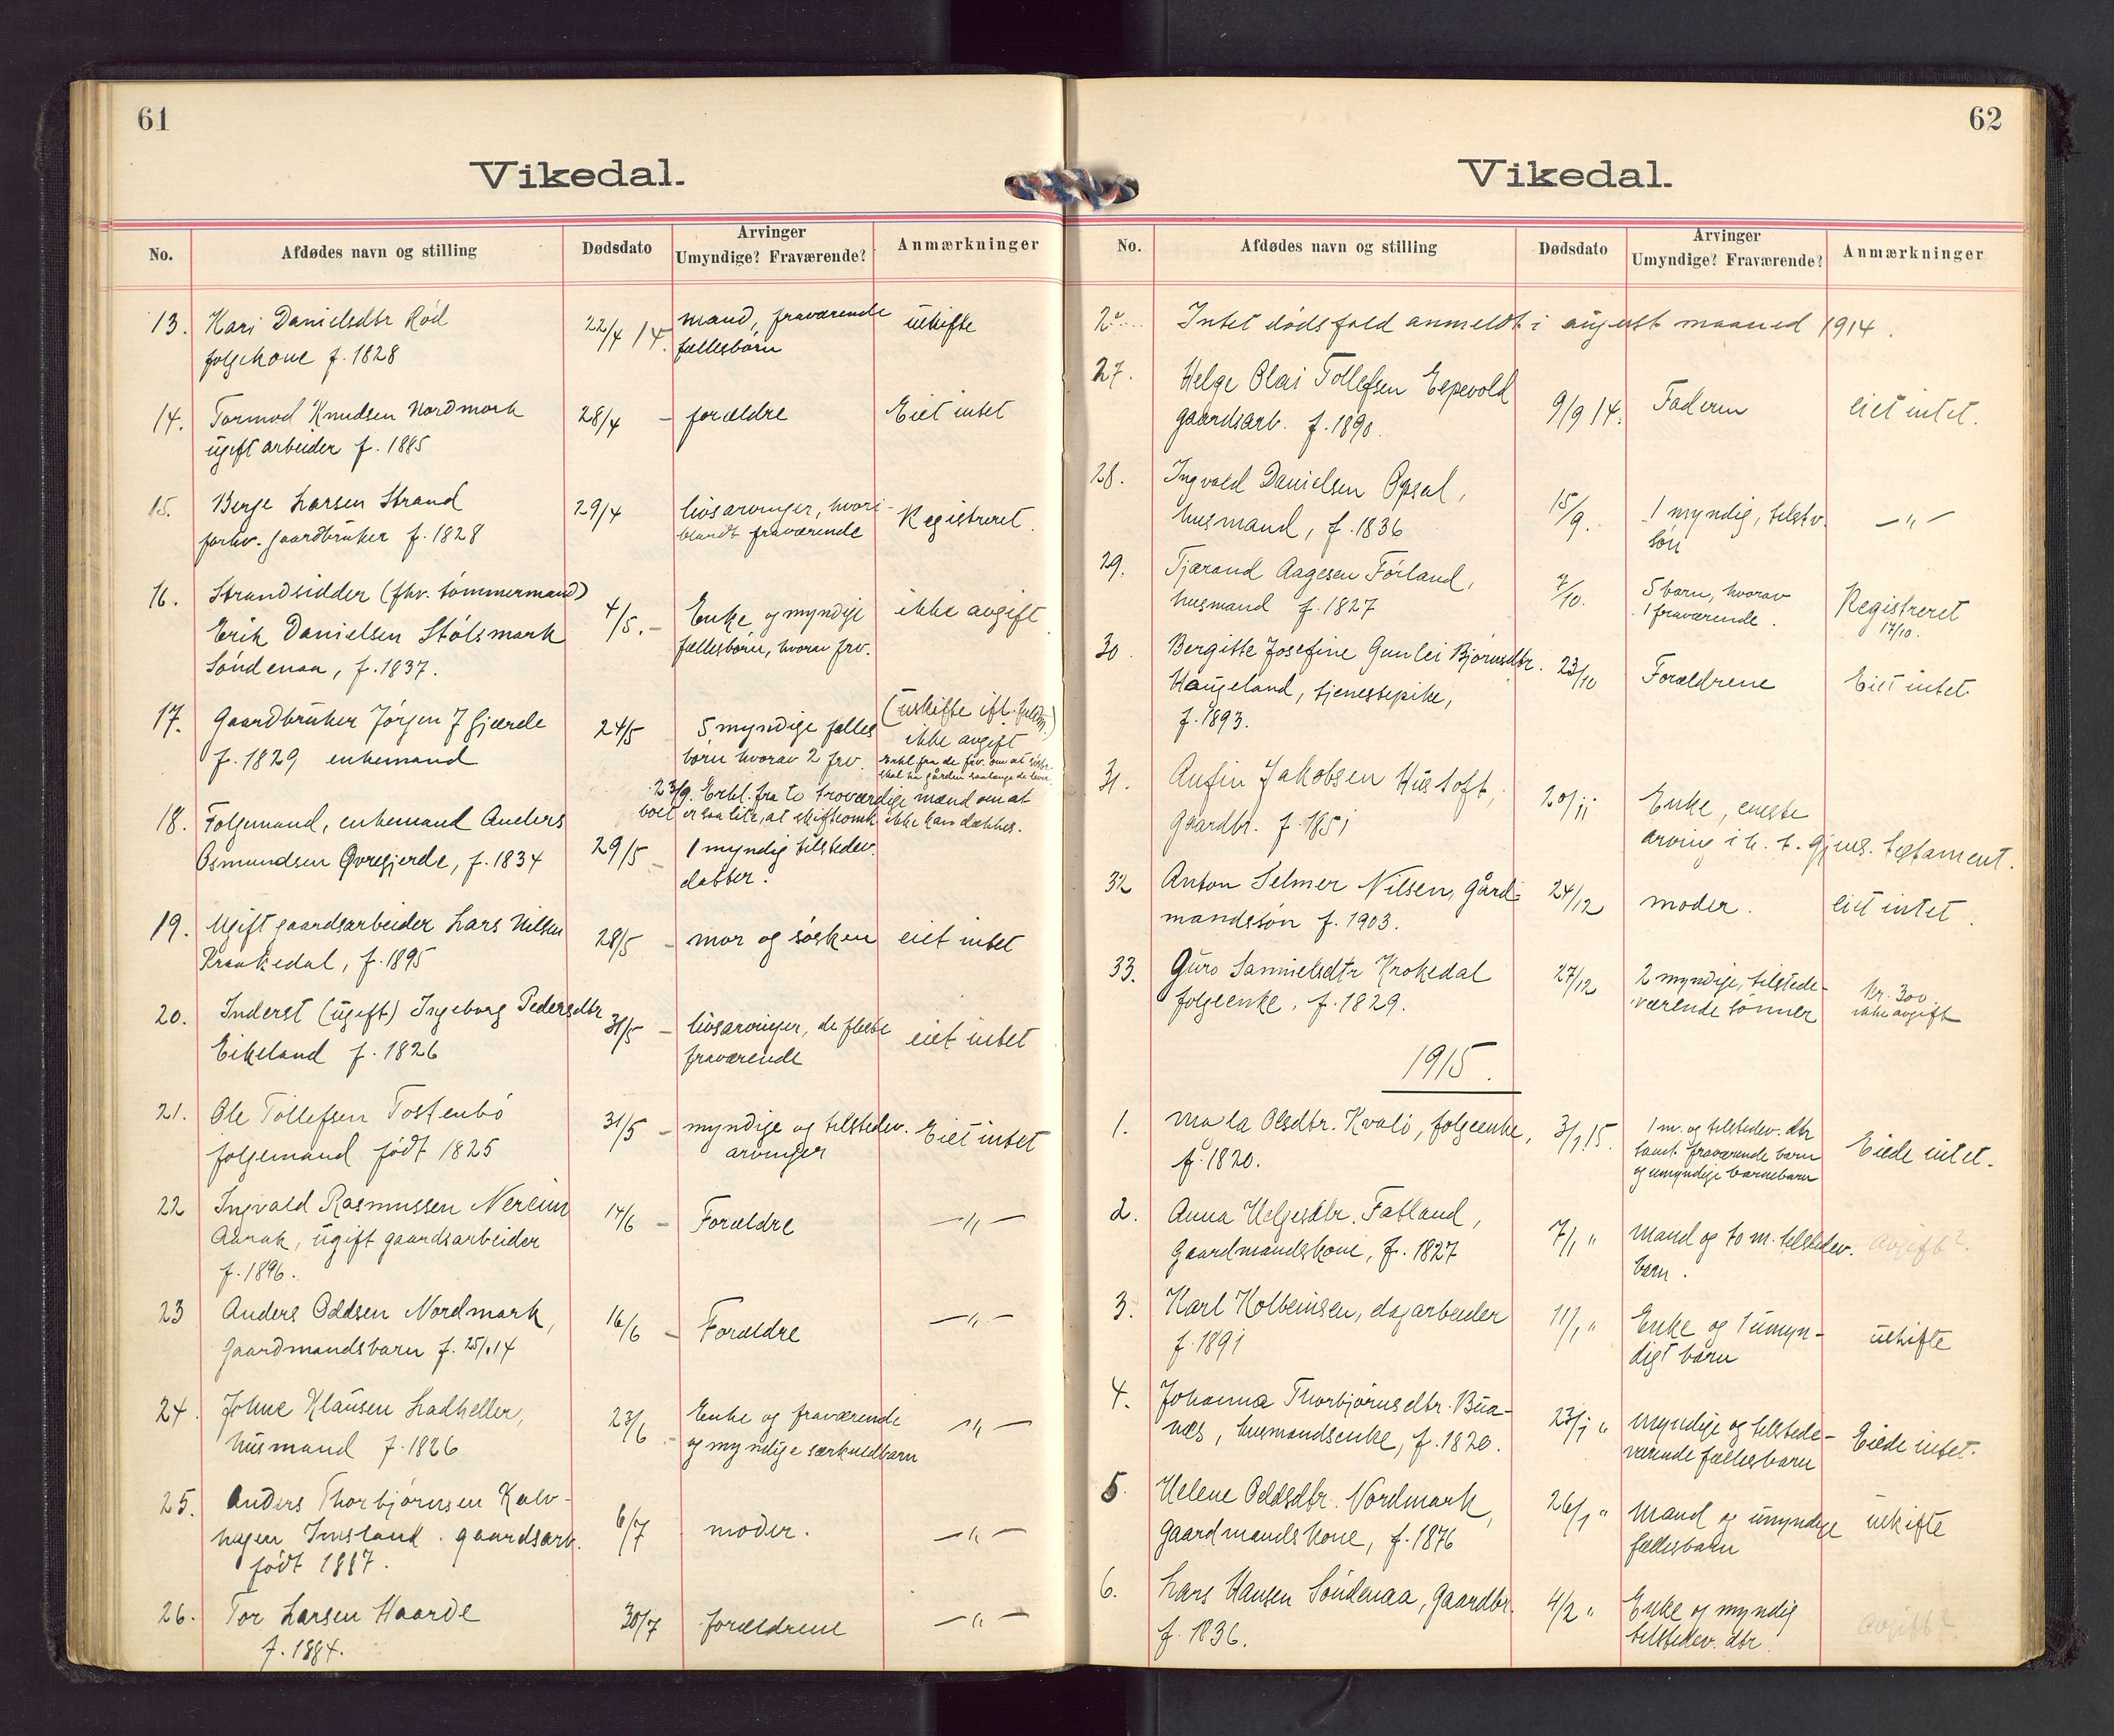 61
Vikedal.
No. Afdødes navn og stilling Dødsdato Arvinger Umyndige? Fraværende? Anmærkninger
13. Kari Danielsdtr Rød 22/4 14. mand, fraværende uskifte
folgekone f. 1828 fællesbørn
14. Tormod Knudsen Nordmork 28/4 – forældre Eiet intet
ugift arbeider f. 1885
15. Berge Larsen Strand 29/4 livsarvinger, hvori- Registreret.
forhv. gaardbruker f. 1828 blandt fraværende
16. Strandsidder (fhv. tømmermand)
Erik Danielsen Stølsmark 4/5. – Enke og myndige ikke avgift
Søndenaa, f. 1837. fællesbørn, hvorav frv.
17. Gaardbruker Jørgen J Gjærde 24/5 5 myndige fælles (uskifte ifl.
f. 1829 enkemand børn hvorav 2 frv. ikke avgift
Erkl. fra de frv. om at
skal ha gården saalænge de lever
23/9. Erkl. fra to troværdige mænd om at
boet er saa lite, at skifteomk ikke kan dækkes.
18. Folgemand, enkemand Anders 29/5 – 1 myndig tilstedev.
Osmundsen Øvregjerde, f. 1834 datter.
19. Ugift gaardsarbeider Lars Nilsen 28/5 – mor og søsken eiet intet
Kraakedal, f. 1895
20. Inderst (ugift) Ingeborg Pedersdtr 31/5 – livsarvinger, de fleste eiet intet
Eikeland f. 1826 fraværende
21. Ole Tollefsen Tostenbø 31/5 – myndige og tilstedev. Eiet intet
folgemand født 1825 arvinger
22 Ingvald Rasmussen Nereim 14/6 – Forældre –〃–
ugift gaardsarbeider
f. 1896.
23 Anders Oddsen Nordmark, 16/6 – Forældre –〃–
Gaardmandsbarn f. 25/1 14
24. Johne Klausen Ladheller, 23/6 – Enke og fraværende –〃–
husmand f. 1826 og myndige særkuldbarn
25. Anders Thorbjørnsen Kalv- 6/7 moder. –〃–
hagen Imsland. gaardsarb.
født 1887.
26. Tor Larsen Haarde 30/7 forældrene –〃–
f. 1884.
62
Vikedal.
No. Afdødes navn og stilling Dødsdato Arvinger Umyndige? Fraværende? Anmærkninger
Intet dødsfald anmeldt i august maaned 1914.
27. Helge Olai Tollefsen Espevold 9/9 14. Faderen eiet intet.
gaardsarb. f. 1890.
28. Ingvald Danielsen Opsal, 15/9. 1 myndig, tilstv. –〃–
husmand, f. 1836 søn
29. Tjærand Aagesen Førland, 7/10. 5 barn, hvorav Registreret
husmand f. 1827 1 fraværende. 17/10.
30. Bergitte Josefine Gunlei Bjørnsdtr. 23/10 Forældrene Eiet intet.
Haugeland, tjenestepike,
f. 1893.
31. Anfin Jakobsen Hustoft, 20/11 Enke, eneste
gaardbr. f. 1851 arving i h. t. gjens. testament.
32 Anton Selmer Nilsen, gård- 24/12 moder. eiet intet.
mandssøn f. 1903.
33. Guro Samuelsdtr Krokedal 27/12 2 myndige, tilstede- kr. 300.
folgeenke, f. 1829. værende sønner ikke avgift
1915.
1. Marta Olsdtr. Kvalø, folgeenke, 3/1 15. 1 m. og tilstedev. dtr Eiede intet.
f. 1820. samt fraværende barn
og umyndige barnebarn
2. Anna Helgesdtr. Fatland, 7/1 " Mand og to m. tilstedev. Avgift?
Gaardmandskone, f. 1827 barn.
3. Karl Kolbeinsen, dagarbeider 11/1 " Enke og 1 umyn- uskifte
f. 1891 digt barn
4. Johanna Thorbjørnsdtr. Bua- 23/1 " Myndige og tilstede- Eiede intet.
næs, husmandsenke, f. 1820. værende fællesbarn
5. Helene Oddsdtr. Nordmark, 26/1 " Mand og umyndige uskifte
gaardmandskone, f. 1876 fællesbarn
6. Lars Hansen Søndenaa, Gaardbr. 4/2 " Enke og myndig Avgift?
f. 1836. tilstedev. dtr.